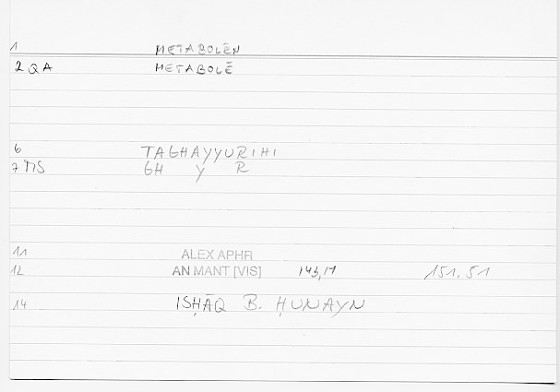 1 METABOLĒN
2 QA METABOLĒ
6 TAGHAYYURIHI
7 TIS GH Y R
11 ALEX APHR
12 AN MANT [VIS] 143,17 151.51
14 ISḤĀQ B. ḤUNAYN